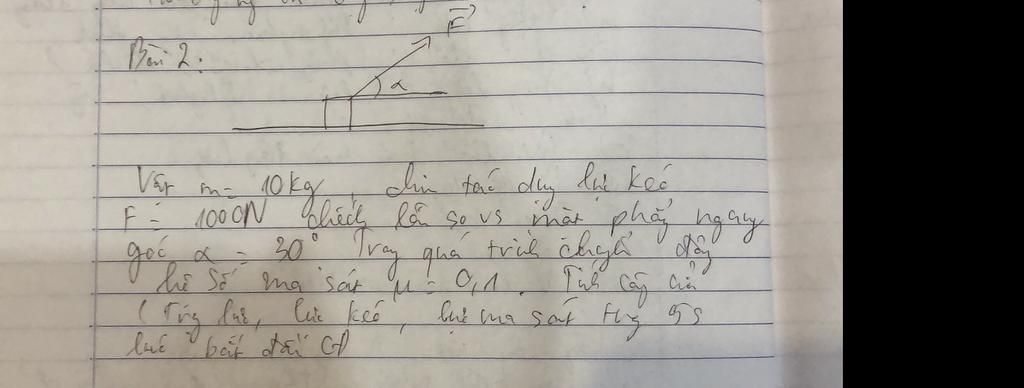 Bài 2:
F
α
Vật m = 10 kg, chịu tác dụng lực kéo
F = 1000N chếch lên so vs mặt phẳng ngang
góc α = 30° Trong quá trình chuyển động
hệ số ma sát μ = 0,1. Tính công của
(Trọng lực, lực kéo, lực ma sát trong 5s
lúc bắt đầu CĐ